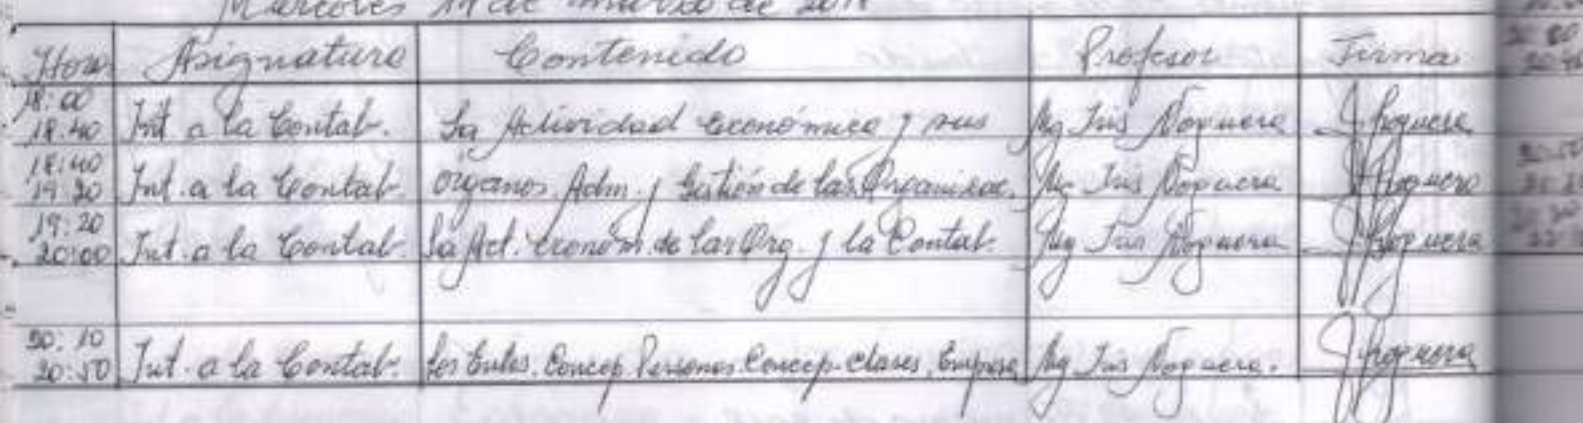 Miércoles 14 de marzo de 2018
Hora Asignatura Contenido Profesor Firma
18:00
18:40 Int. a la Contab. La Actividad económica y sus Mg Iris Noguera INoguera
18:40
19:20 Int. a la Contab. órganos. Adm. y Gestión de las Organizac. Mg Iris Noguera INoguera
19:20
20:00 Int. a la Contab. La Act. económ. de las Org. y la Contab. Mg Iris Noguera INoguera
20:10
20:50 Int. a la Contab. Los Entes. Concep. Personas. Concep. clases. Empresa Mg Iris Noguera. INoguera